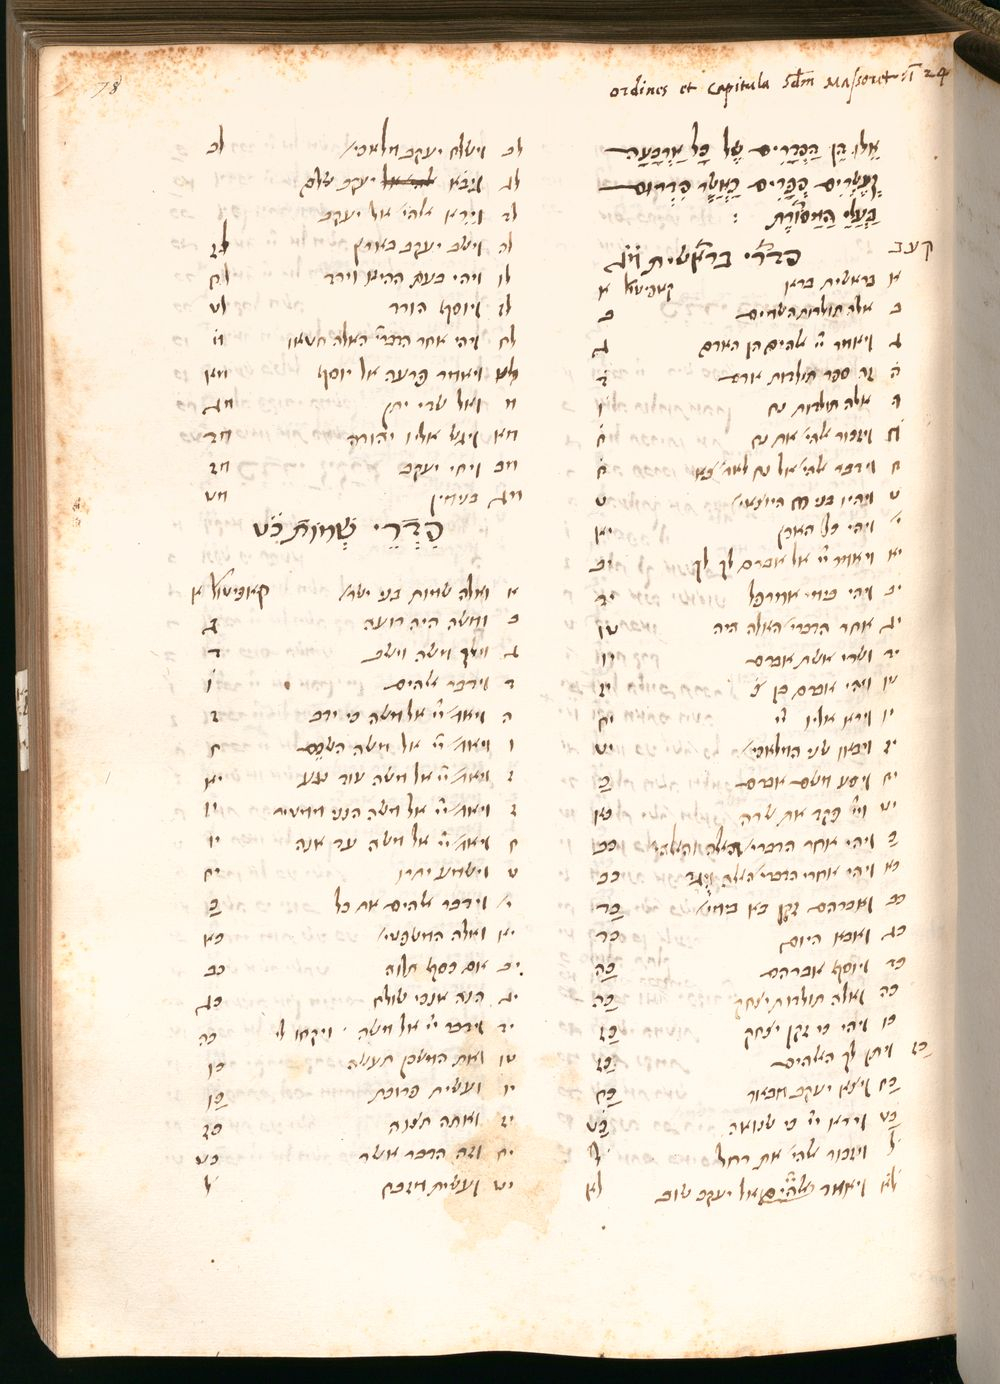 78
ordines et Capitula sdm Massoret 24
אֵלּוּ הֵן הַסְּדָרִים שֶׁל כָּל אַרְבָּעָה
וְעֶשְׂרִים סְפָרִים כַּאֲשֶׁר סִדְּרוּם
בַּעֲלֵי הַמָּסוֹרֶת :
סדרי בראשית מג
א בראשית ברא קאפיטול א
ב אלה תולדות השמים ב
ג ויאמר יי אלהים הן האדם ג
זה ספר תולדות אדם
ה אלה תולדות נח ו
ויזכור אלהי את נח ח
וידבר אלהי אל נח לאר צא ח
ט ויהיו בני נח היוצאי ט
י ויהי כל הארץ יא
יא ויאמר יי אל אברם לך לך יב
יב ויהי בימי אמרפל יד
יג אחר הדברי האלה היה טו
יד ושרי אשת אברם יו
טו ויהי אברם בן יז
יו וירא אליו יי יח
יז ויבאו שני המלאכי יט
יח ויסע משם אברם כ
יט ויי פקד את שרה כא
כ ויהי אחר הדברי האלה כב
כא ויהי אחרי הדברי האלה ויגד כב
כב ואברהם זקן בא בימי כד
כג ואבא היום כד
כד ויוסף אברהם כה
כה ואלה תולדות יצחק כה
כו ויהי כי זקן יצחק כז
כז ויתן לך האלהים כז
כח ויצא יעקב מבאר כח
כט וירא יי כי שנואה כט
ל ויזכור אלהי את רחל ל
לא ויאמר אלהים אל יעקב שוב לא
לב וישלח יעקב מלאכי לב
לג ויבא יעקב שלם
לד וירא אלהי אל יעקב
לה וישב יעקב בארץ לז
לו ויהי בעת ההיא וירד לח
לז ויוסף הורד לט
לח ויהי אחר הדברי האלה חטאו מ
לט ויאמר פרעה אל יוסף מא
מ ואל שדי יתן מג
מא ויגש אליו יהודה מד
מב ויחי יעקב מז
מג בנימין מט
סִדְרֵי שְׁמוֹת כט
א ואלה שמות בני ישר קאפיטול א
ב ומשה היה רועה ג
ג וילך משה וישב ד
ד וידבר אלהים ו
ה ויאמ יי אל משה כי ידב ז
ו ויאמ יי אל משה השכם ח
ז ויאמ יי אל משה עוד נגע יא
ז ויאמ יי אל משה הנני ממטיר יו
ח ויאמ יי אל משה עד אנה יו
ט וישמע יתרו יח
י וידבר אלהים את כל כ
יא ואלה המשפטי כא
יב אם כסף תלוה כב
יג הנה אנכי שולח כג
יד וידבר יי אל משה ויקחו לי כה
טו ואת המשכן תעשה כו
יו ועשית פרוכת כו
יז ואתה תצוה כז
יח וזה הדבר אשר כט
יט ועשית מזבח ל